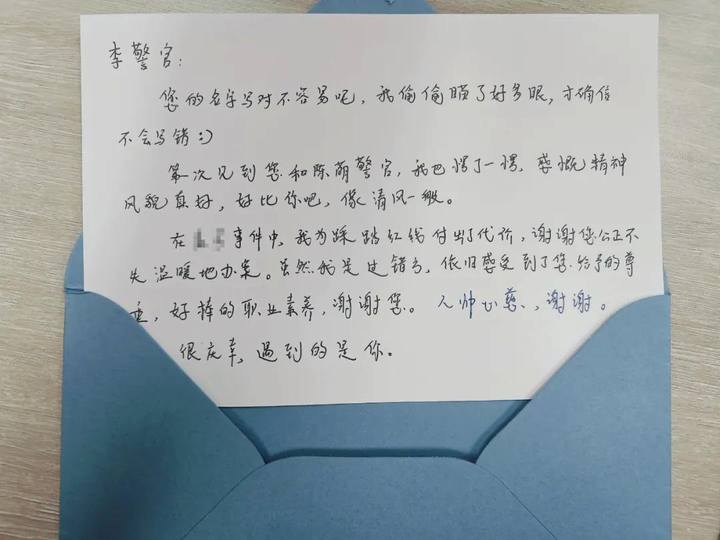 李警官：
您的名字写对不容易吧，我偷偷瞄了好多眼，才确信
不会写错:)
第一次见到您和陈萌警官，我巴愣了一愣，感慨精神
风貌真好，好比你吧，像清风一般。
在 事件中，我为踩踏红线付出了代价，谢谢您公正不
失温暖地办案。虽然我是过错方，依旧感受到了您给予的尊
重，好棒的职业素养，谢谢您。人帅心慈、谢谢。
很庆幸，遇到的是你。